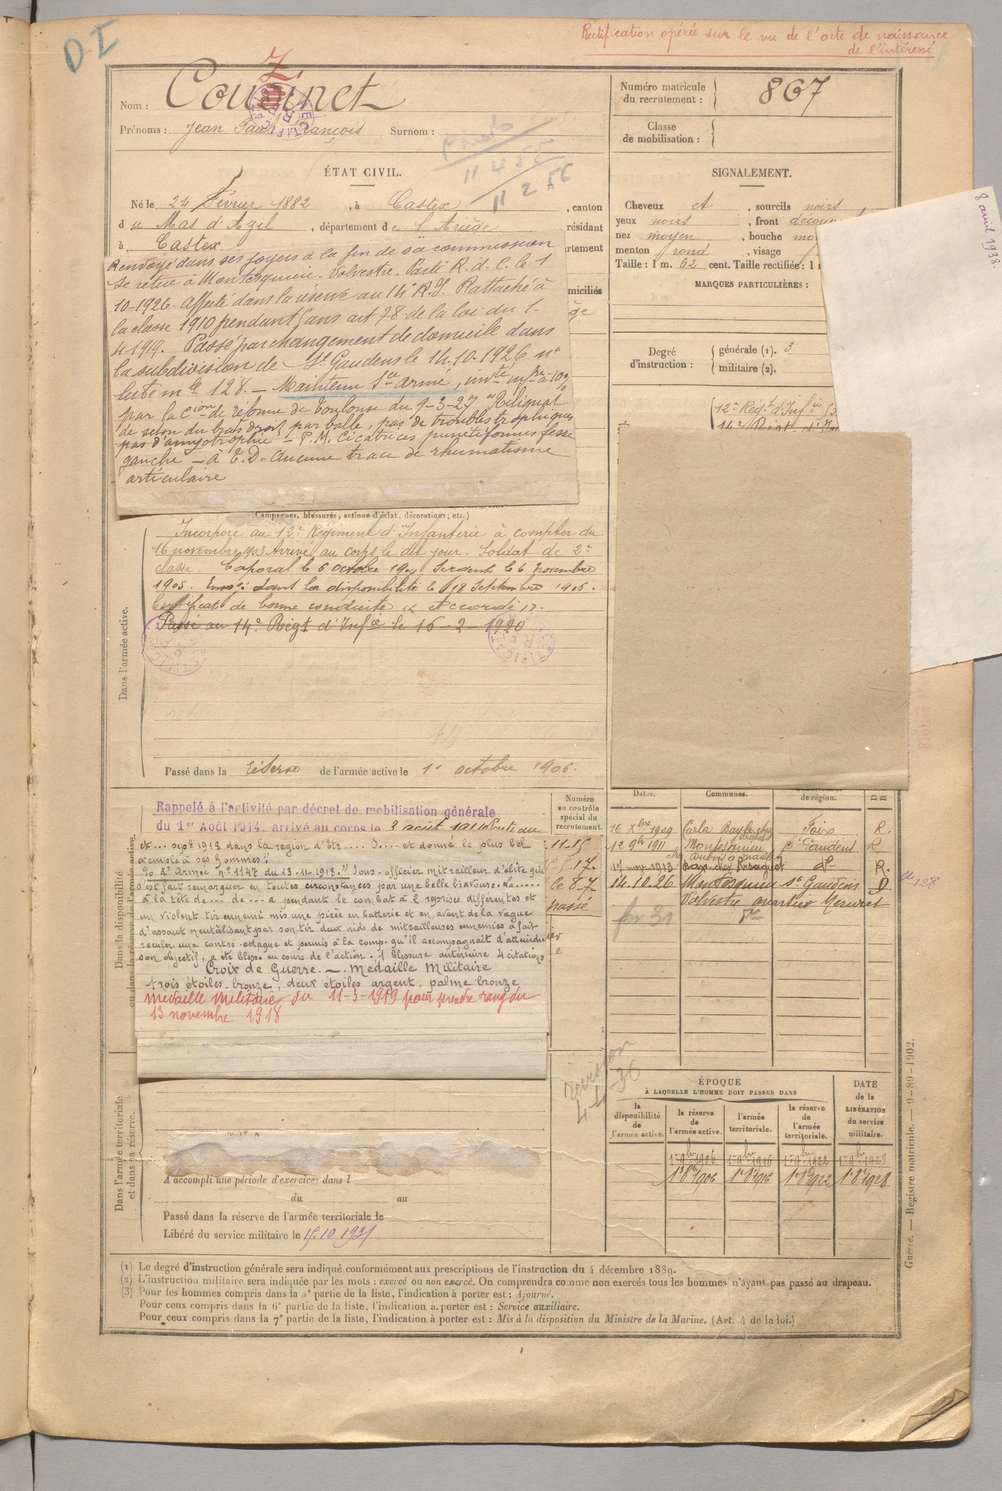 D.I
Rectification opérée sur le vu de l'acte de naissance
de l'intéressé
Nom : Couzinet
Prénoms : Jean François Surnom :
Numéro matricule
du recrutement : 867
Classe
de mobilisation :
ÉTAT CIVIL.
Né le 24 Février 1882, à Castex, canton
du Mas d'Azil, département de l'Ariège, résidant
à Castex
SIGNALEMENT.
Cheveux ct, sourcils noirs
yeux noirs, front découv
nez moyen, bouche mo
menton rond, visage
Taille : 1 m. 62 cent. Taille rectifiée : 1
MARQUES PARTICULIÈRES :
Degré
d'instruction :
générale (1). 3
militaire (2).
Renvoyé dans ses foyers à la fin de sa commission
se retire à Montesquieu-Volvestre. Parti R.d.C. le 1
10-1926. Affecté dans la réserve au 14e R.I. Rattaché à
la classe 1910 pendant ans art 78 de la loi du 1-
4 1919. Passé par changement de domicile dans
la subdivision de St Gaudens le 14.10.1926 no
luté mle 128. — Maintenu Sce armé, invté infre à 10%
par la Con de réforme de Toulouse du 9-3-27 "Reliquat
de séton du bras droit par balle, pas de troubles trophiques
pas d'amyotrophie — P.M. Cicatrices punctiformes fesse
gauche — à E.D. Aucune trace de rhumatisme
articulaire
Campagnes, blessures, actions d'éclat, décorations, etc.)
Dans l'armée active.
Incorporé au 12e Régiment d'Infanterie à compter du
16 novembre 1903 Arrivé au corps le dit jour. Soldat de 2e
classe. Caporal le 6 octobre 1904 Sergent le 6 novembre
1905. Envoyé dans la disponibilité le 18 Septembre 1906.
Certificat de bonne conduite « Accordé ».
Passé au 14e Régt d'Infie le 16-2-1920
Passé dans la réserve de l'armée active le 1er octobre 1906.
Rappelé à l'activité par décret de mobilisation générale
du 1er Août 1914. arrivé au corps le 3 août 1914
sept 1918 dans la région d'
exemple à ses hommes."
Armée no 1147 du 13.11.1918." Sous-officier mitrailleur d'élite qui
s'est fait remarquer en toutes circonstances par une belle bravoure.
à la tête de pendant le combat à 2 reprises différentes et
un violent tir ennemi mis une pièce en batterie et en avant de la vague
d'assaut neutralisant par son tir deux nids de mitrailleuses ennemies à fait
reculer une contre-attaque et permis à la comp. qu'il accompagnait d'atteindre
son objectif, a été blessé au cours de l'action. 1 blessure antérieure 4 citations
Croix de Guerre. — Médaille Militaire
trois étoiles bronze, deux étoiles argent, palme bronze
Médaille militaire du 11-3-1919 pour prendre rang du
13 novembre 1918
Numéro
au contrôle
spécial du
recrutement.
Dates.
Communes.
de région.
16 Xbre 1909 Carla Bayle Foix R.
12 9bre 1911 Montesquieu St Gaudens D.
14.10.26 Montesquieu St Gaudens D 128
Volvestre quartier
Révision
4-4-36
Dans l'armée territoriale
et dans sa réserve.
A accompli une période d'exercices dans l
du au
Passé dans la réserve de l'armée territoriale le
Libéré du service militaire le 15.10.1931
ÉPOQUE
À LAQUELLE L'HOMME DOIT PASSER DANS
DATE
de la
LIBÉRATION
du service
militaire.
la
disponibilité
de l'armée
active.
la réserve
de
l'armée active.
l'armée
territoriale.
la réserve
de
l'armée
territoriale.
1er 8bre 1906 1er 8bre 1916 1er 8bre 1922 1er 8bre 1928
(1) Le degré d'instruction générale sera indiqué conformément aux prescriptions de l'instruction du 4 décembre 1889.
(2) L'instruction militaire sera indiquée par les mots : exercé ou non exercé. On comprendra comme non exercés tous les hommes n'ayant pas passé au drapeau.
(3) Pour les hommes compris dans la 2e partie de la liste, l'indication à porter est : Ajourné.
Pour ceux compris dans la 6e partie de la liste, l'indication à porter est : Service auxiliaire.
Pour ceux compris dans la 7e partie de la liste, l'indication à porter est : Mis à la disposition du Ministre de la Marine. (Art. 4 de la loi.)
Guerre. — Registre matricule. — 9-89-1902.
8 avril 1938.